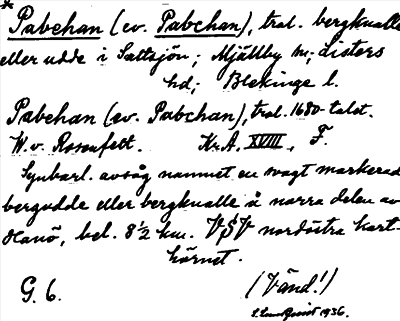 *
Pabehan (ev. Pabchan), trol. bergknalle
eller udde i Saltsjön; Mjällby sn; Listers
hd; Blekinge l.
Pabehan (ev. Pabchan), trol. 1680-talet.
W. v. Rosenfelt. Kr.A. XVIII, F.
Synbarl. avsåg namnet en svagt markerad
bergudde eller bergknalle å norra delen av
Hanö, bel. 8½ km. VSV nordöstra kart-
hörnet.
G. 6. (Vänd!)
1936.